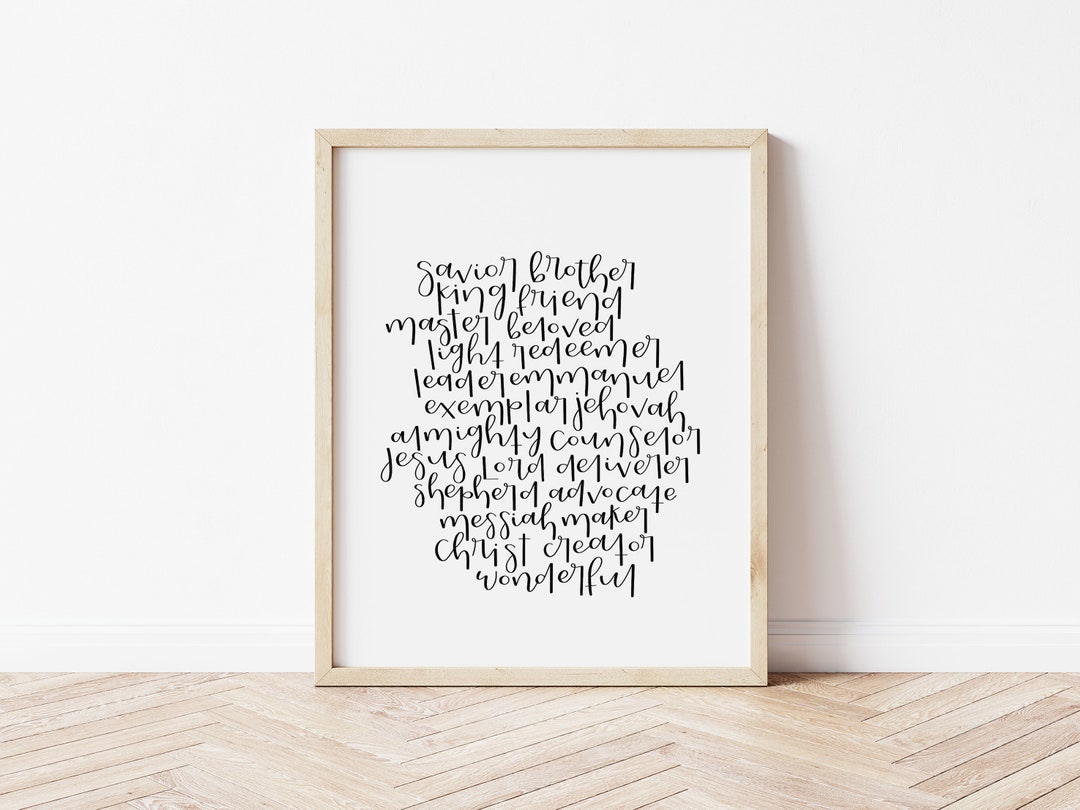 savior brother
king friend
master beloved
light redeemer
leader emmanuel
exemplar jehovah
almighty counselor
Jesus Lord deliverer
shepherd advocate
messiah maker
Christ creator
wonderful